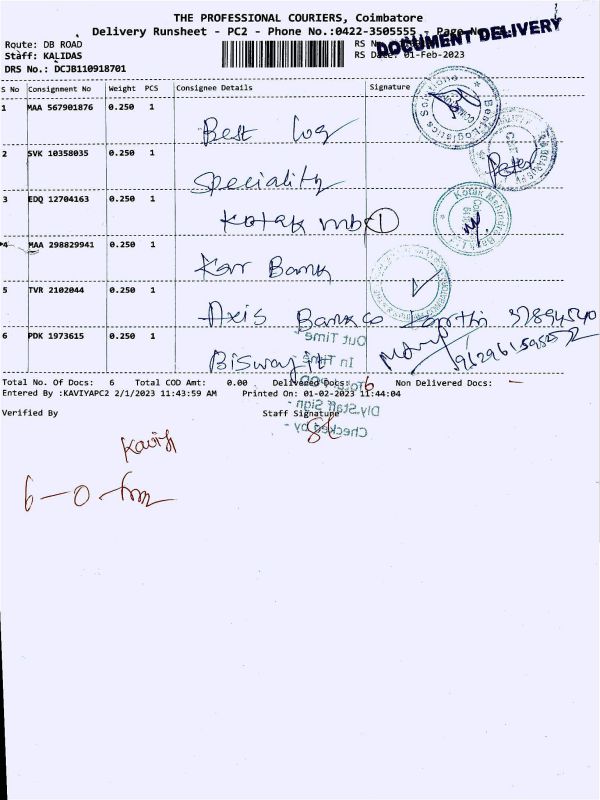 THE PROFESSIONAL COURIERS, Coimbatore
Delivery Runsheet - PC2 - Phone No.:0422-3505555 - Page No
DOCUMENT DELIVERY
Route: DB ROAD
RS No
Staff: KALIDAS
RS Date: 01-Feb-2023
DRS No.: DCJB110918701
S No Consignment No Weight PCS Consignee Details Signature
1 MAA 567901876 0.250 1
Best log
2 SVK 10358035 0.250 1
Speciality
Peter
3 EDQ 12704163 0.250 1
Kotak mb 1
4 MAA 298829941 0.250 1
Karr Bank
5 TVR 2102044 0.250 1
Axis Bank
6 PDK 1973615 0.250 1
Biswajit
Out Time -
In Time
Total No. Of Docs: 6 Total COD Amt: 0.00 Delivered Docs: 6 Non Delivered Docs: -
Entered By :KAVIYAPC2 2/1/2023 11:43:59 AM Printed On: 01-02-2023 11:44:04
Dly.Staff Sign -
Verified By Staff Signature
Checked by -
6-0-